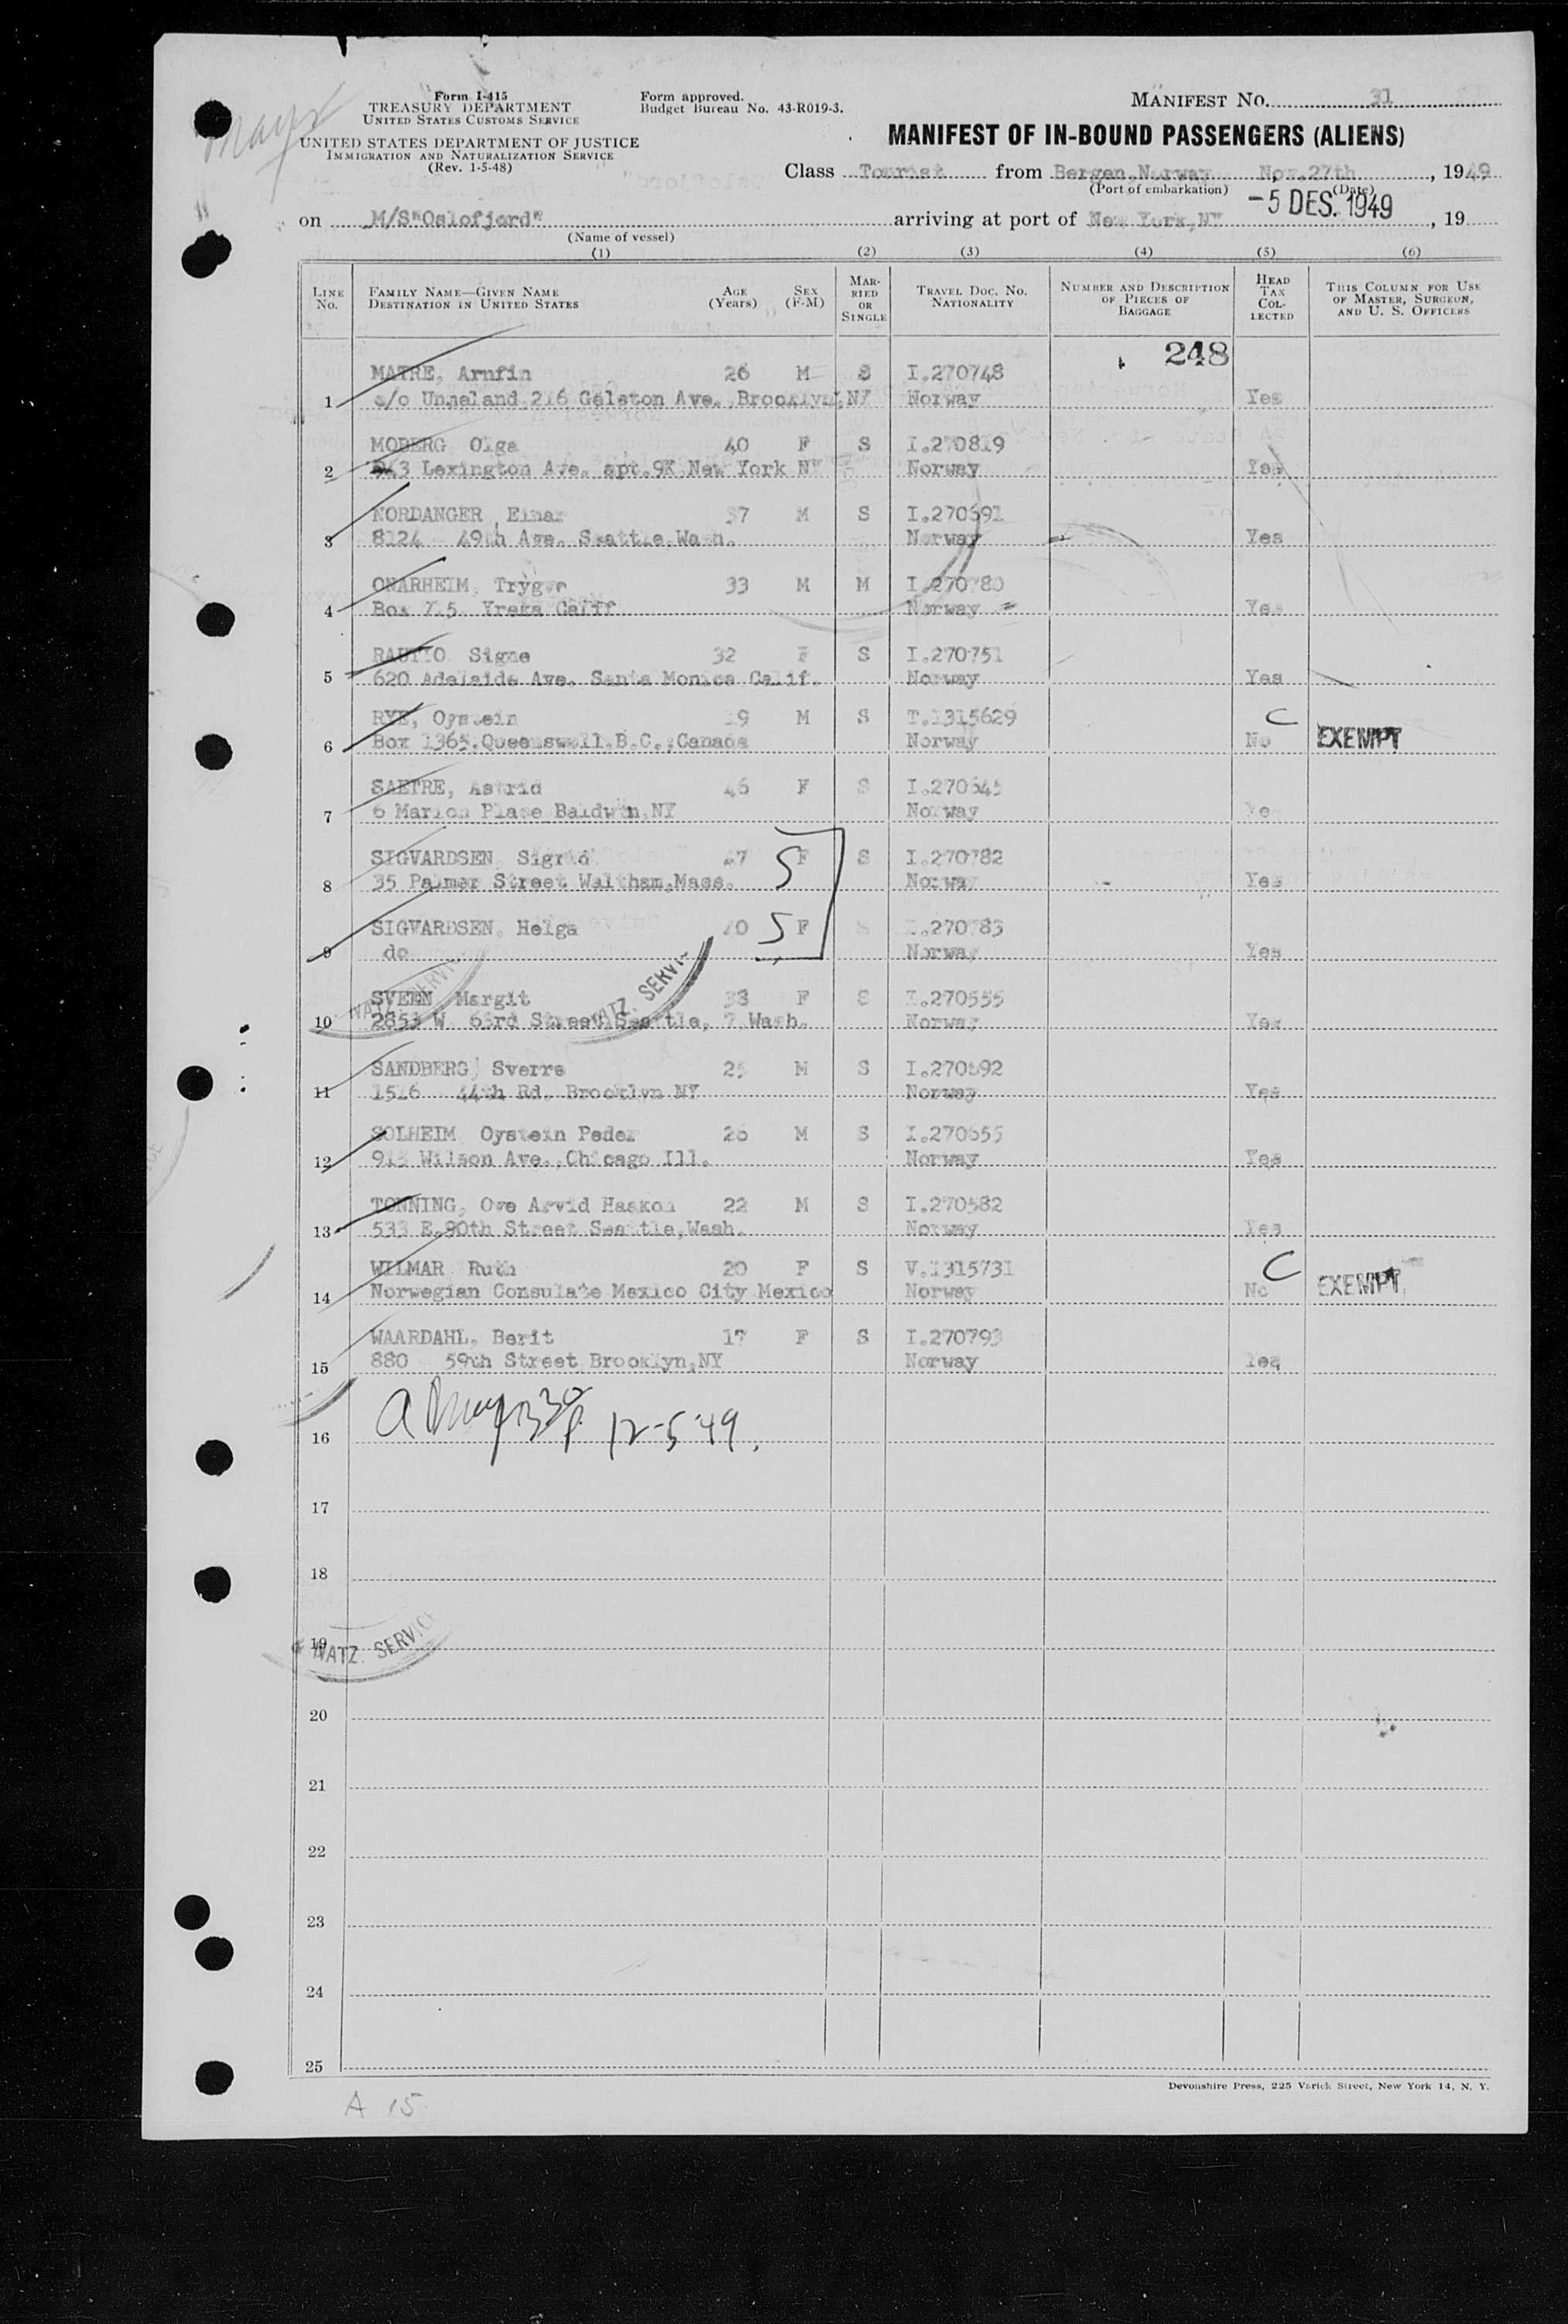 Form I-415
TREASURY DEPARTMENT
UNITED STATES CUSTOMS SERVICE
UNITED STATES DEPARTMENT OF JUSTICE
IMMIGRATION AND NATURALIZATION SERVICE
(Rev. 1-5-48)
Form approved.
Budget Bureau No. 43-R019-3.
MANIFEST NO. 31
MANIFEST OF IN-BOUND PASSENGERS (ALIENS)
Class Tourist from Bergen, Norway Nov. 27th, 1949
(Port of embarkation) (Date)
-5 DES. 1949
on M/S"Oslofjord" arriving at port of New York, NY, 19
(Name of vessel)
(1) (2) (3) (4) (5) (6)
LINE NO. FAMILY NAME—GIVEN NAME DESTINATION IN UNITED STATES AGE (Years) SEX (F-M) MARRIED OR SINGLE TRAVEL DOC. NO. NATIONALITY NUMBER AND DESCRIPTION OF PIECES OF BAGGAGE HEAD TAX COLLECTED THIS COLUMN FOR USE OF MASTER, SURGEON, AND U. S. OFFICERS
248
MATRE, Arnfin 26 M S I.270748
1 c/o Unneland 216 Gelston Ave. Brooklyn, NY Norway Yes
MOBERG Olga 40 F S I.270819
2 43 Lexington Ave. apt.9K New York NY Norway Yes
NORDANGER, Einar 37 M S I.270691
3 8124 49th Ave. Seattle, Wash. Norway Yes
ONARHEIM, Trygve 33 M M I.270780
4 Box 715 Yreka Calif Norway Yes
RAUTIO Signe 32 F S I.270751
5 620 Adelaide Ave. Santa Monica Calif. Norway Yes
RYE, Oystein 19 M S T.1315629 C
6 Box 1365. B.C., Canada Norway No EXEMPT
SAETRE, Astrid 46 F S I.270645
7 6 Marion Place Baldwin, NY Norway Yes
SIGVARDSEN Sigrid 47 F S I.270782
8 35 Palmer Street Waltham, Mass. Norway Yes
SIGVARDSEN, Helga 40 F S I.270783
9 do Norway Yes
SVEEN Margit 38 F S I.270555
10 2853 W. 63rd Street Seattle, 7 Wash. Norway Yes
NATZ. SERVI
NATZ. SERVI
SANDBERG, Sverre 25 M S I.270692
11 1516 44th Rd. Brooklyn NY Norway Yes
SOLHEIM Oystein Peder 26 M S I.270655
12 913 Wilson Ave., Chicago Ill. Norway Yes
TONNING, Ove Arvid Haakon 22 M S I.270582
13 533 E.90th Street Seattle, Wash. Norway Yes
WILMAR Ruth 20 F S V.1315731 C
14 Norwegian Consulate Mexico City Mexico Norway No EXEMPT
WAARDAHL, Berit 17 F S I.270793
15 880 59th Street Brooklyn, NY Norway Yes
16 12-5-49.
17
18
19
NATZ. SERVICE
20
21
22
23
24
25
Devonshire Press, 225 Varick Street, New York 14, N. Y.
A 15